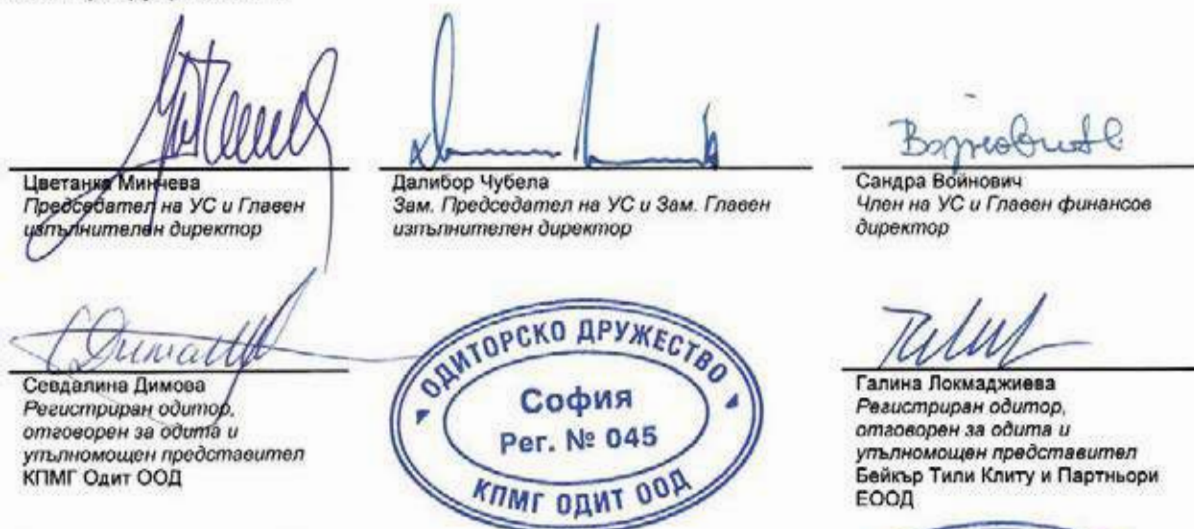 Цветанка Минчева
Председател на УС и Главен
изпълнителен директор
Далибор Чубела
Зам. Председател на УС и Зам. Главен
изпълнителен директор
Сандра Войнович
Член на УС и Главен финансов
директор
Севдалина Димова
Регистриран одитор,
отговорен за одита и
упълномощен представител
КПМГ Одит ООД
ОДИТОРСКО ДРУЖЕСТВО
София
Рег. № 045
КПМГ ОДИТ ООД
Галина Локмаджиева
Регистриран одитор,
отговорен за одита и
упълномощен представител
Бейкър Тили Клиту и Партньори
ЕООД